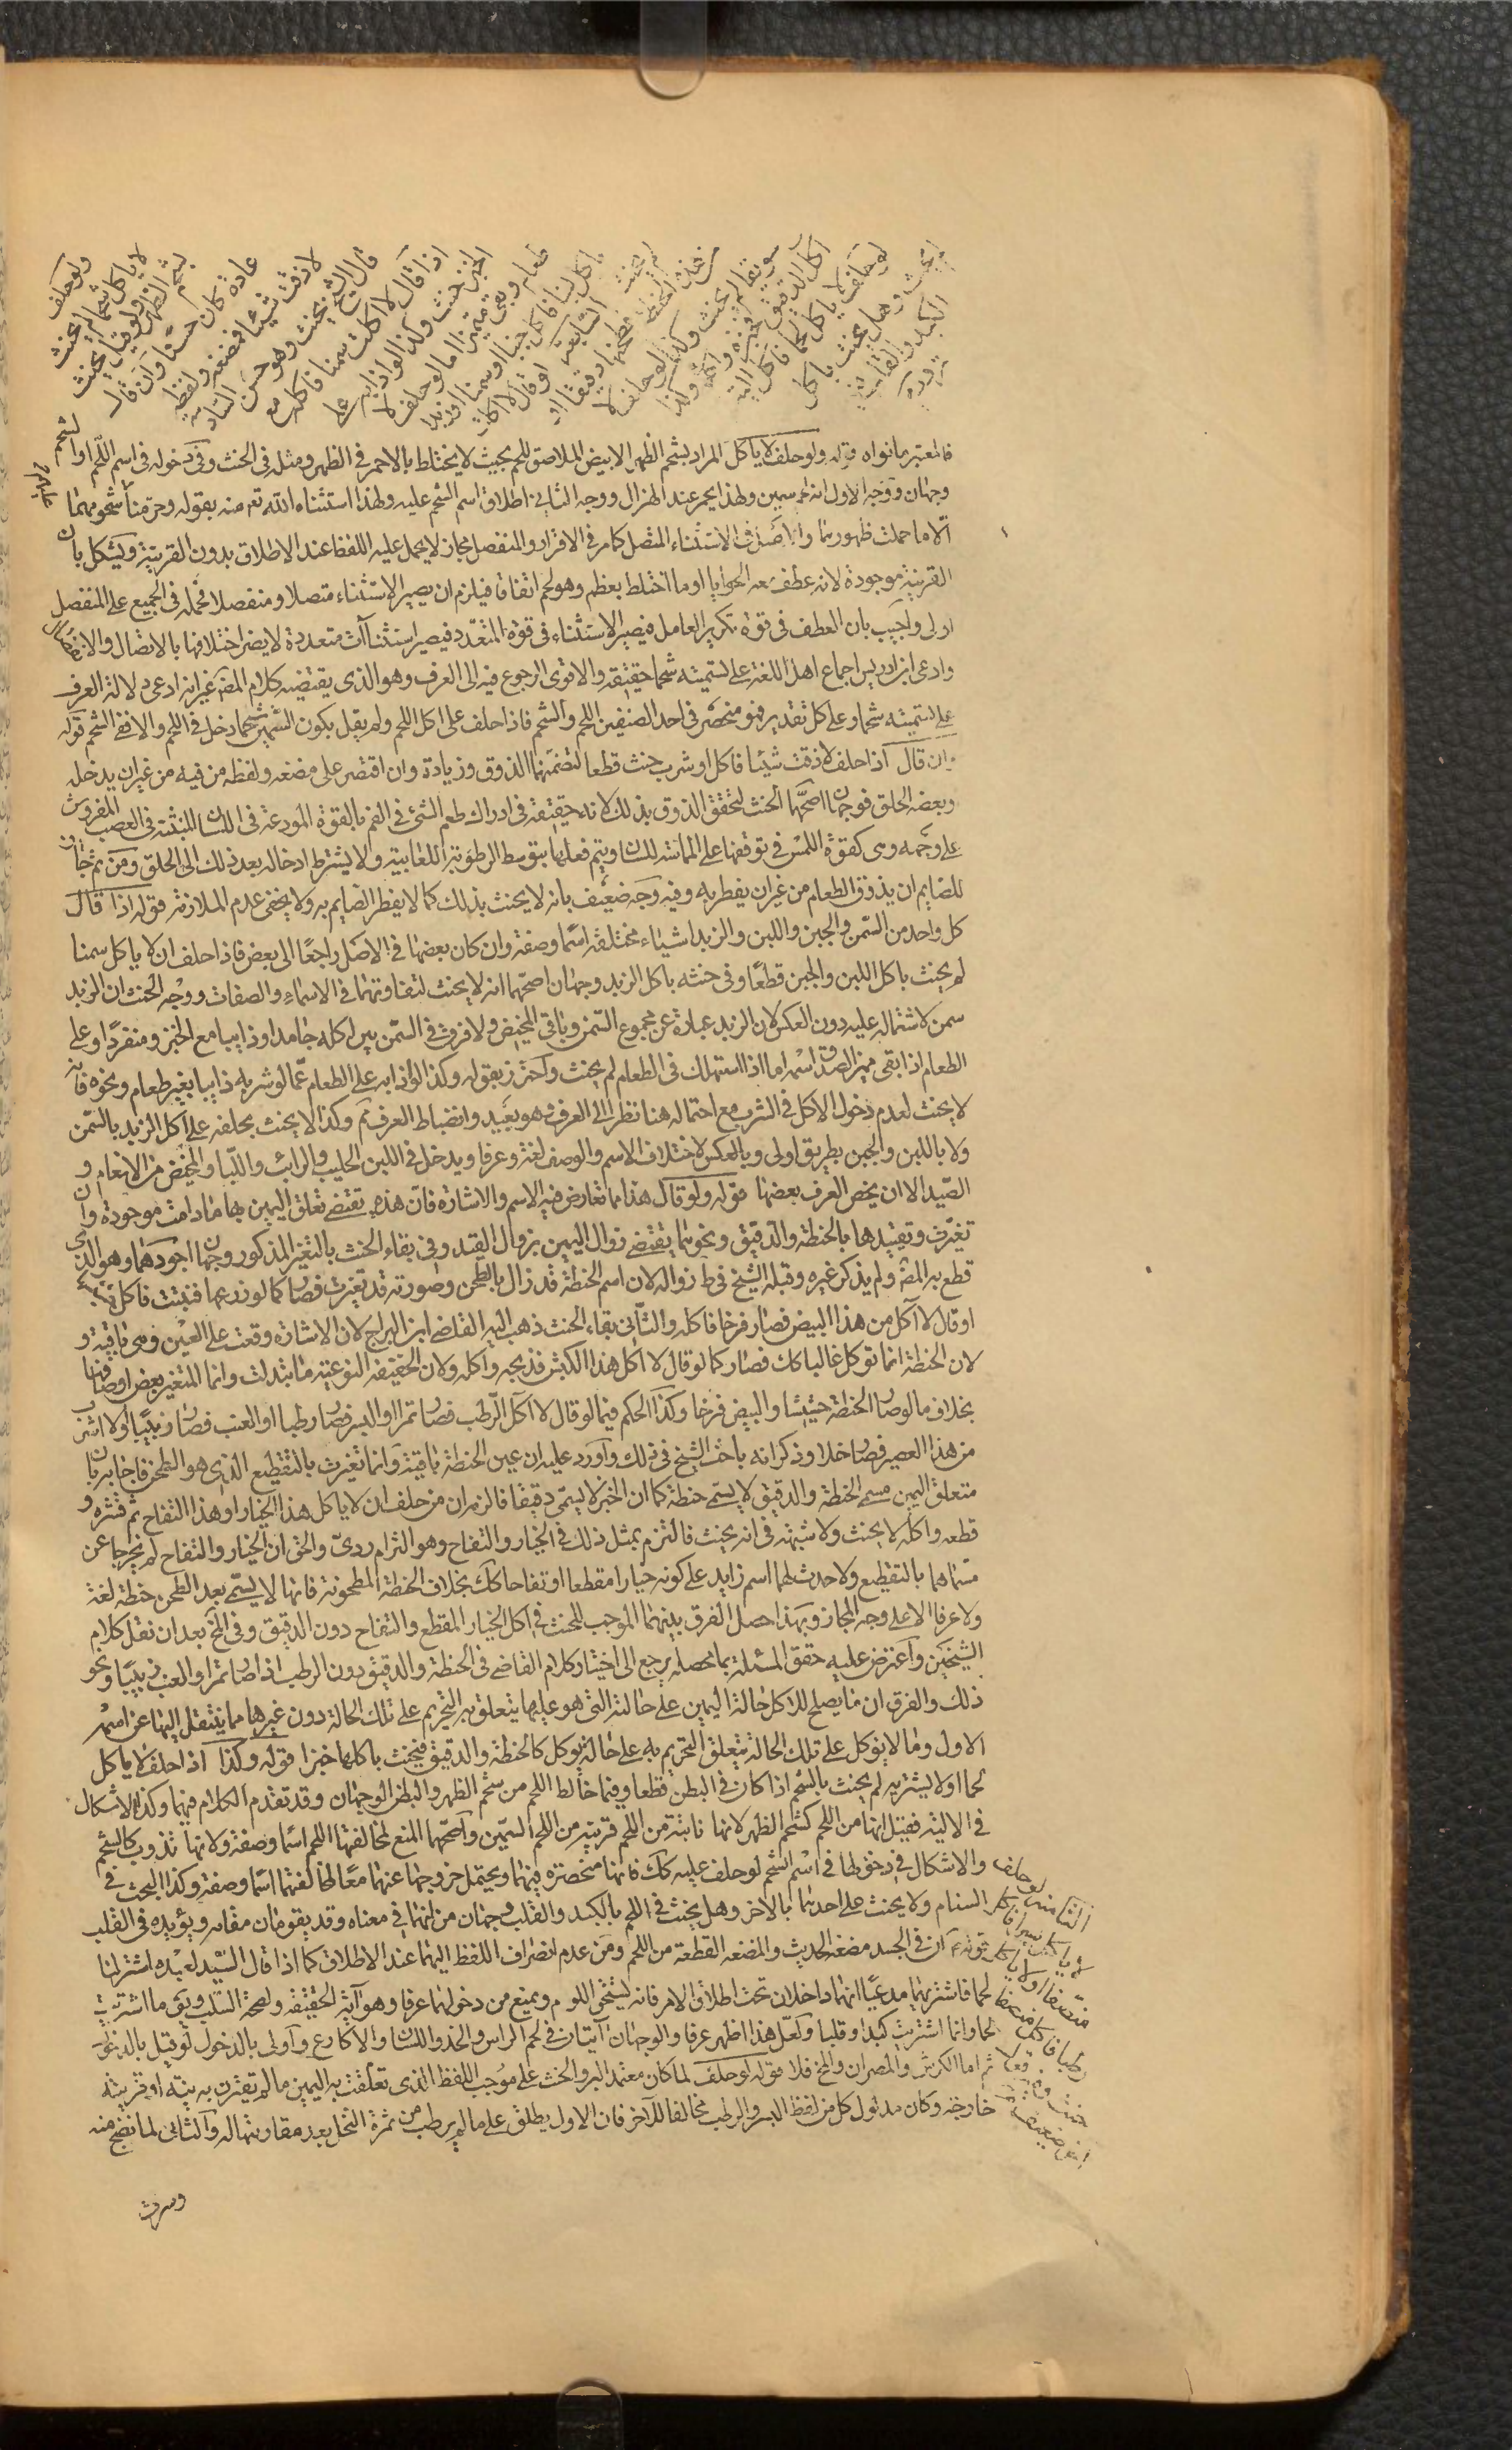 ولو حلف
لا ياكل شحما لم يحنث
بشحم الظهر ولو قيل يحنث
عادة كان حسنا وان قال
لا ذقت شيئا فمضغه ولفظه
قال الشيخ يحنث وهو حسن السادسة
اذا قال لا اكلت سمنا فاكله مع
الخبز حنث وكذا لو اذابه على
طعام وبقى متميزا اما لو حلف لا
ياكل لبنا فاكل جبنا او سمنا او زبدا
لم يحنث السابعة لو قال لا اكلت
من هذه الحنطة فطحنها دقيقا او
سويقا لم يحنث وكذا لو حلف لا
اكل الدقيق فخبزه واكله وكذا
لو حلف لا ياكل لحما فاكل الية
لم يحنث وهل يحنث باكل
الكبد والقلب فيه
تردد
فالمعتبر ما نواه قوله ولو حلف لا ياكل المراد بشحم الظهر الابيض الملاصق للحم بحيث لا يختلط بالاحمر فى الظهر ومثله فى الجنب وفى دخوله فى اسم اللحم او الشحم
وجهان ووجه الاول انه لحم سمين ولهذا يحمر عند الهزال ووجه الثانى اطلاق اسم الشحم عليه ولهذا استثناه الله تعه منه بقوله وحرمنا عليهم شحومهما
الا ما حملت ظهورهما والاصل فى الاستثناء المتصل كما مر فى الاقرار والمنفصل مجاز لا يحمل عليه اللفظ عند الاطلاق بدون القرينة ويشكل بان
القرينة موجودة لانه عطف عليه الحوايا او ما اختلط بعظم وهو لحم اتفاقا فيلزم ان يصير الاستثناء متصلا ومنفصلا فحمله فى الجميع على المنفصل
اولى واجيب بان العطف فى قوة تكرير العامل فيصير الاستثناء فى قوة المتعدد فيصير استثناآت متعددة لا يضر اختلافها بالاتصال والانفصال
وادعى ابن ادريس اجماع اهل اللغة على تسميته شحما حقيقة والاقوى الرجوع فيه الى العرف وهو الذى يقتضيه كلام المصه غير انه ادعى دلالة العرف
على تسميته شحما وعلى كل تقدير فهو منحصر فى احد الصنفين اللحم والشحم فاذا حلف على اكل اللحم ولم يقل بكون السمين شحما دخل فى اللحم والا ففى الشحم قوله
وان قال اذا حلف لا ذقت شيئا فاكل او شرب حنث قطعا لتضمنهما الذوق وزيادة وان اقتصر على مضغه ولفظه من فيه من غير ان يدخله
وبعضه الحلق فوجهان اصحهما الحنث لتحقق الذوق بذلك لانه حقيقة فى ادراك طعم الشئ فى الفم بالقوة المودعة فى اللسان المنبثة فى العصب المفروش
على وجهه وهى كقوة اللمس فى توقفها على المماسة للسان ويتم فعلها بتوسط الرطوبة اللعابية ولا يشترط ادخاله بعد ذلك الى الحلق ومن ثم جاز
للصايم ان يذوق الطعام من غير ان يفطر به وفيه وجه ضعيف بانه لا يحنث بذلك كما لا يفطر الصايم به ولا يخفى عدم الملازمة قوله اذا قال
كل واحد من السمن والجبن واللبن والزبد اشياء مختلفة اسما وصفة وان كان بعضها فى الاصل راجعا الى بعض فاذا حلف ان لا ياكل سمنا
لم يحنث باكل اللبن والجبن قطعا وفى حنثه باكل الزبد وجهان اصحهما انه لا يحنث لتفاوتهما فى الاسماء والصفات ووجه الحنث ان الزبد
سمن لاشتماله عليه دون العكس لان الزبد عبارة عن مجموع السمن وباقى المخيض ولا فرق فى السمن بين اكله جامدا وذايبا مع الخبز ومنفردا وعلى
الطعام اذا بقى مميزا لصدق اسمه اما اذا استهلك فى الطعام لم يحنث واحترز بقوله وكذا لو اذابه على الطعام عما لو شربه ذايبا بغير طعام ونحوه فانه
لا يحنث لعدم دخول الاكل فى الشرب مع احتماله هنا نظرا الى العرف وهو بعيد وانضباط العرف ثم وكذا لا يحنث بحلفه على اكل الزبد بالسمن
ولا باللبن والجبن بطريق اولى وبالعكس لاختلاف الاسم والوصف لغة وعرفا ويدخل فى اللبن الحليب والرائب واللبا والمخيض من الانعام و
الصيد الا ان يخص العرف بعضها قوله ولو قال هذا مما تعارض فيه الاسم والاشارة فان هذه تقتضى تعلق اليمين بها ما دامت موجودة وان
تغيرت وتقييدها بالحنطة والدقيق ونحوهما يقتضى زوال اليمين بزوال القيد وفى بقاء الحنث بالتغير المذكور وجهان اجودهما وهو الذى
قطع به المصه ولم يذكر غيره وقبله الشيخ فى ط زواله لان اسم الحنطة قد زال بالطحن وصورته قد تغيرت فصار كما لو زرعها فنبتت فاكل
او قال لا آكل من هذا البيض فصار فرخا فاكله والثانى بقاء الحنث ذهب اليه القاضى ابن البراج لان الاشارة وقعت على العين وهى باقية و
لان الحنطة انما توكل غالبا كك فصار كما لو قال لا آكل هذا الكبش فذبحه واكله ولان الحقيقة النوعية ما تبدلت وانما المتغير بعض اوصافها
بخلاف ما لو صار الحنطة حشيشا والبيض فرخا وكذا الحكم فيما لو قال لا آكل الرطب فصار تمرا او البسر فصار رطبا او العنب فصار زبيبا او لا اشرب
من هذا العصير فصار خلا وذكر انه باحث الشيخ فى ذلك واورد عليه ان عين الحنطة باقية وانما تغيرت بالتقطيع الذى هو الطحن فاجابه بان
متعلق اليمين مسمى الحنطة والدقيق لا يسمى حنطة كما ان الخبز لا يسمى دقيقا فالزمه ان من حلف ان لا ياكل هذا الخيار او هذا التفاح ثم قشره و
قطعه واكله لا يحنث ولا شبهة فى انه يحنث فالتزم بمثل ذلك فى الخيار والتفاح وهو التزام ردى والحق ان الخيار والتفاح لم يخرجا عن
مسماهما بالتقطيع ولا حدث لهما اسم زايد على كونه خيارا مقطعا او تفاحا كك بخلاف الحنطة المطحونة فانها لا يسمى بعد الطحن حنطة لغة
ولا عرفا الا على وجه المجاز وبهذا حصل الفرق بينهما الموجب للحنث فى اكل الخيار المقطع والتفاح دون الدقيق وفى المخ بعد ان نقل كلام
الشيخين واعترض عليه حقق المسئلة بما محصله يرجع الى اختيار كلام القاضى فى الحنطة والدقيق دون الرطب اذا صار تمرا والعنب زبيبا ونحو
ذلك والفرق ان ما يصلح للاكل حالة اليمين على حالته التى هو عليها يتعلق به التحريم على تلك الحالة دون غيرها مما ينتقل اليها عن اسمه
الاول وما لا يوكل على تلك الحالة يتعلق التحريم به على حالة يوكل كالحنطة والدقيق فيحنث باكلها خبزا قوله وكذا اذا حلف لا ياكل
لحما او لا يشتريه لم يحنث بالشحم اذا كان فى البطن قطعا وفيما خالط اللحم من شحم الظهر والبطن الوجهان وقد تقدم الكلام فيهما وكذا الاشكال
فى الالية فقيل انها من اللحم كشحم الظهر لانها نابتة من اللحم قريبة من اللحم السمين واصحهما المنع لمخالفتها اللحم اسما وصفة ولانها تذوب كالشحم
والاشكال فى دخولها فى اسم الشحم لو حلف عليه كك فانها منحصرة فيهما ويحتمل خروجها عنهما معا لمخالفتهما اسما وصفة وكذا البحث فى
السنام ولا يحنث على احدهما بالاخر وهل يحنث فى اللحم بالكبد والقلب وجهان من انهما فى معناه وقد يقومان مقامه ويؤيده فى القلب
قوله ع ان فى الجسد مضغة الحديث والمضغة القطعة من اللحم ومن عدم انصراف اللفظ اليهما عند الاطلاق كما اذا قال السيد لعبده اشتر لنا
لحما فاشتريهما مدعيا انهما داخلان تحت اطلاق الامر فانه يستحق اللوم ويمنع من دخولهما عرفا وهو آية الحقيقة ولصحة السلب وبق ما اشتريت
لحما وانما اشتريت كبدا وقلبا ولعل هذا اظهر عرفا والوجهان آتيان فى لحم الراس والخد واللسان والاكارع واولى بالدخول لو قيل به
ثم اما الكرش والمصران والمخ فلا قوله لو حلف لما كان معتمد البر والحنث على موجب اللفظ الذى تعلقت به اليمين ما لم يقترن به نية او قرينة
خارجة وكان مدلول كل من لفظ البسر والرطب مخالفا للآخر فان الاول يطلق على ما لم يرطب من ثمرة النخل بعد مقاربتها له والثانى لما نضج منه
الثامنة لو حلف
لا ياكل بسرا فاكل
منصفا او لا ياكل
رطبا فاكل منصفا
حنث وفيه قول
اخر ضعيف
وسرت